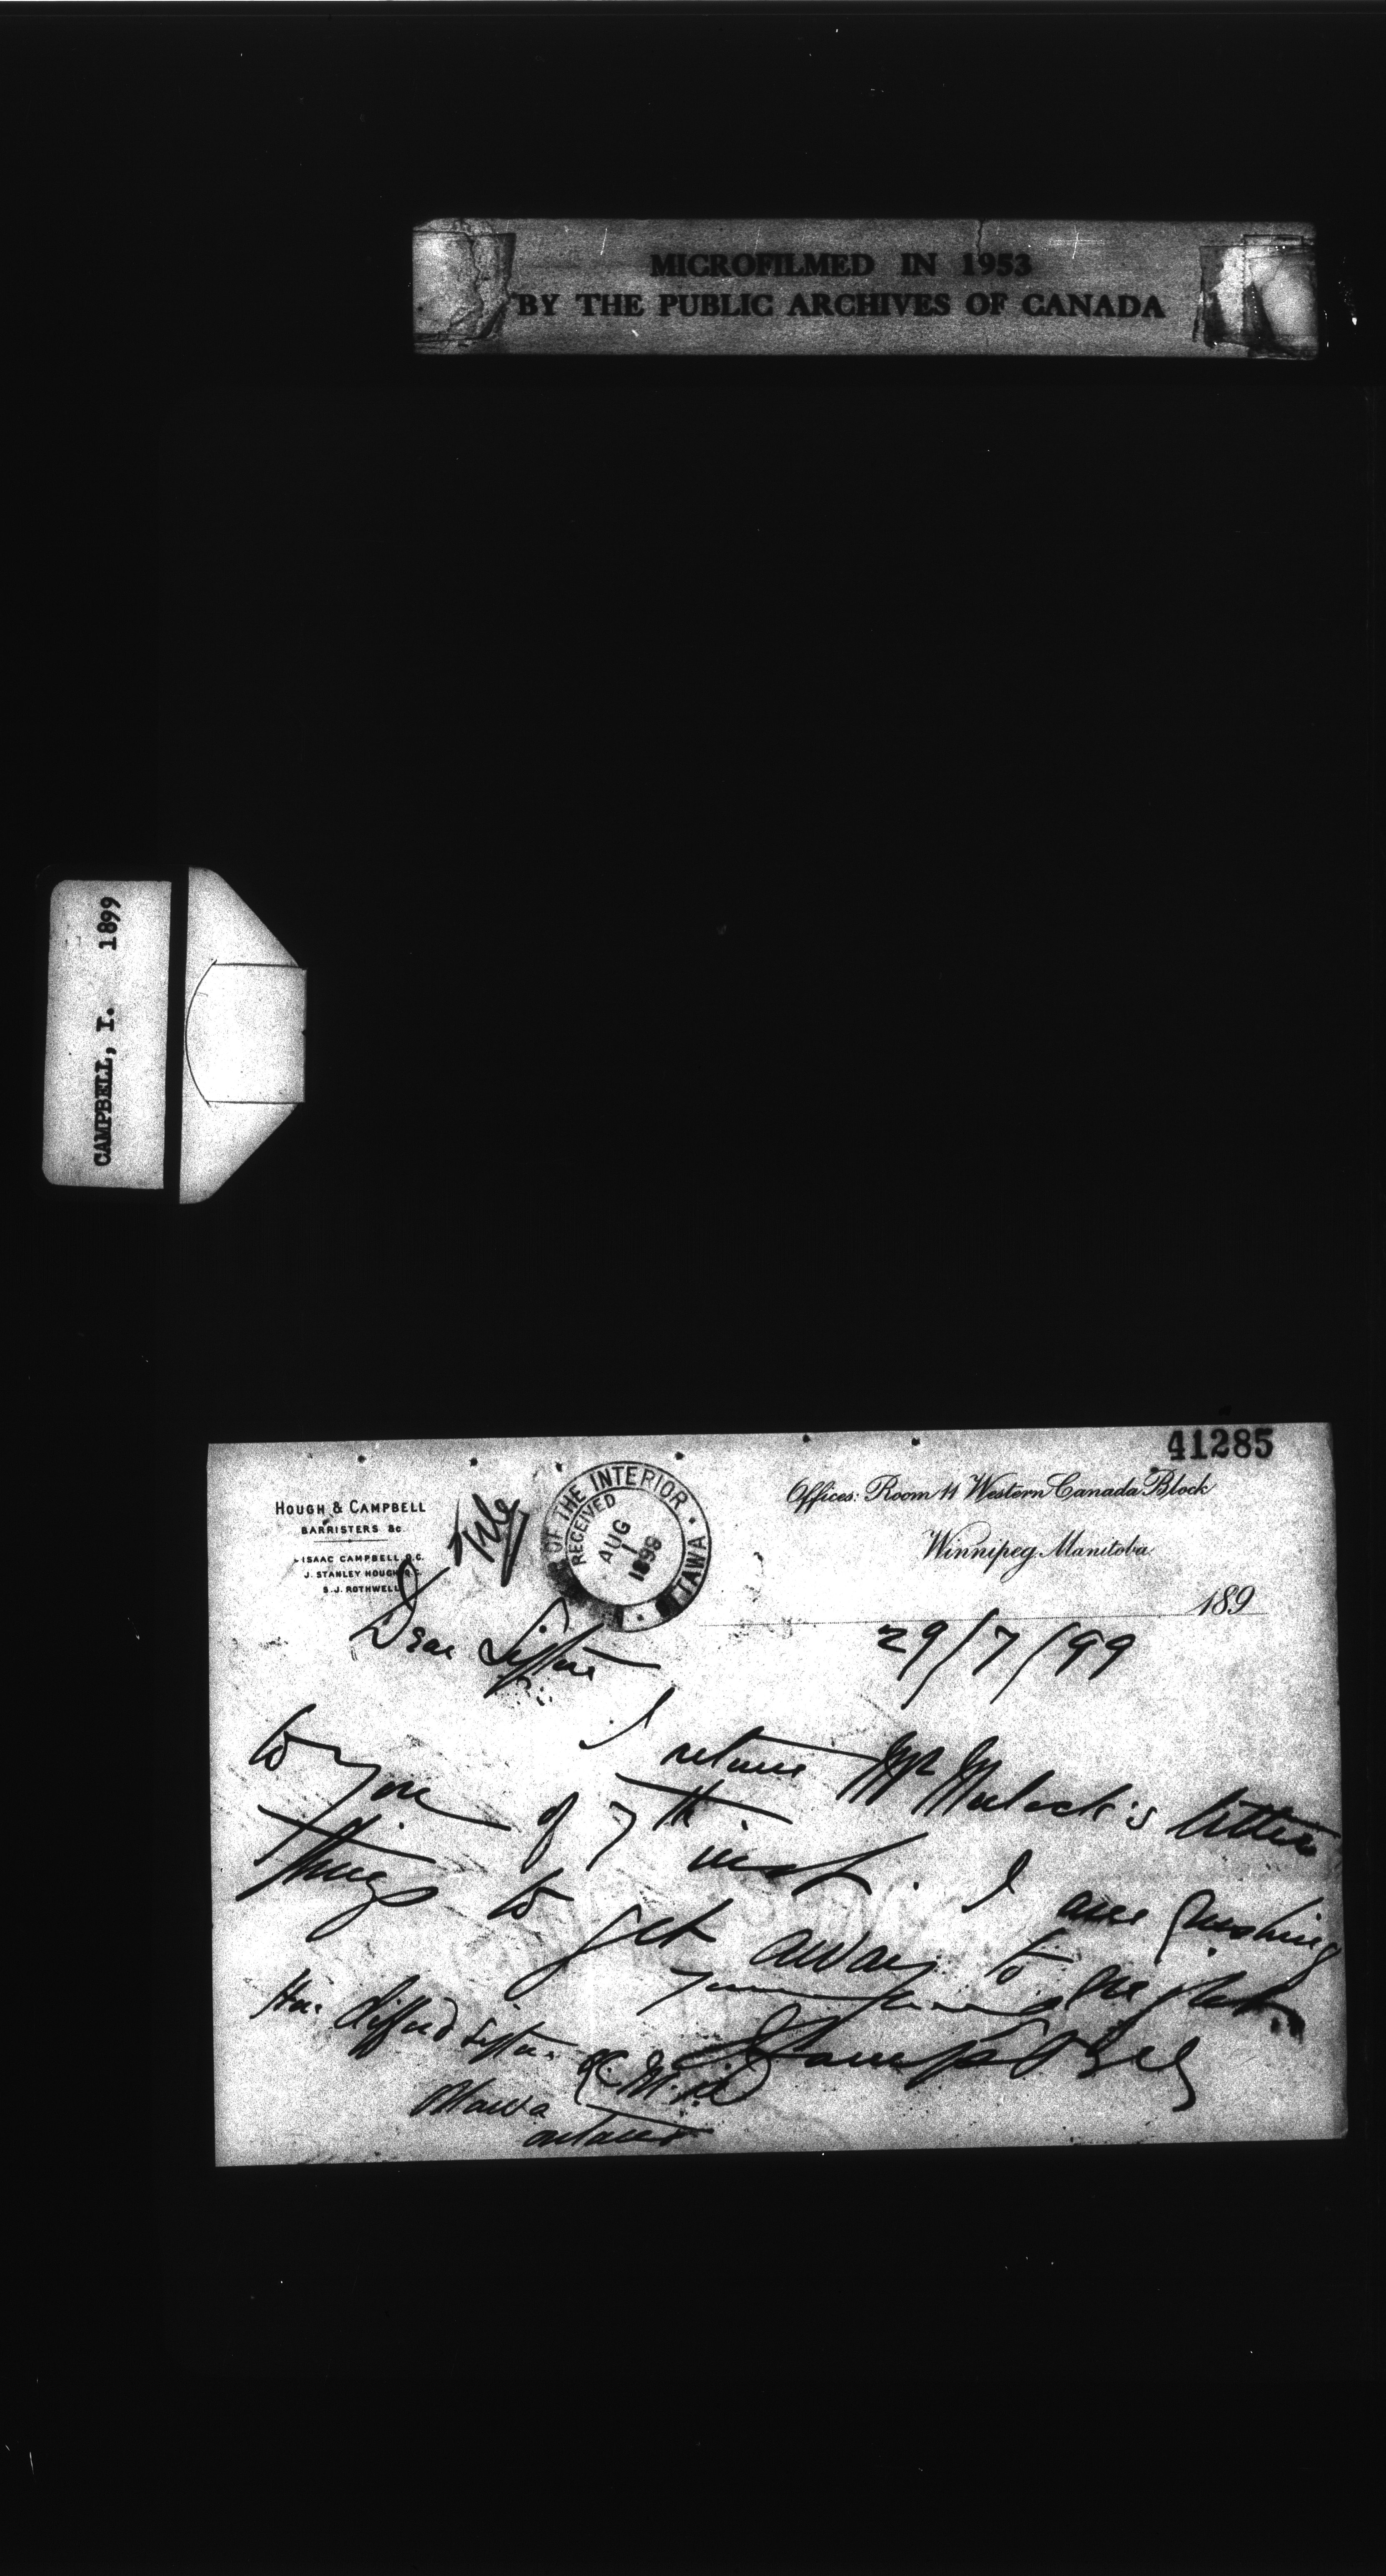 MICROFILMED IN 1953
BY THE PUBLIC ARCHIVES OF CANADA
CAMPBELL, I. 1899
41285
HOUGH & CAMPBELL
BARRISTERS &c.
ISAAC CAMPBELL, Q.C.
J. STANLEY HOUGH, Q.C.
S. J. ROTHWELL
File
OF THE INTERIOR · OTTAWA ·
RECEIVED
AUG 1 1899
Offices: Room 11 Western Canada Block
Winnipeg, Manitoba
189
29/7/99
Dear Sifton
I return Mr Mulock's letter
to you of 7th inst. I am pushing
things to get away to the
Yours
Isaac Campbell
Hon Clifford Sifton
Ottawa
Ontario